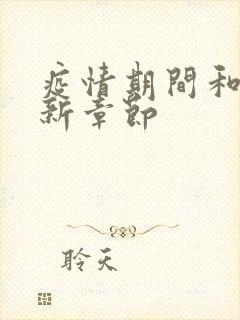 疫情期間和
新章節
聆天